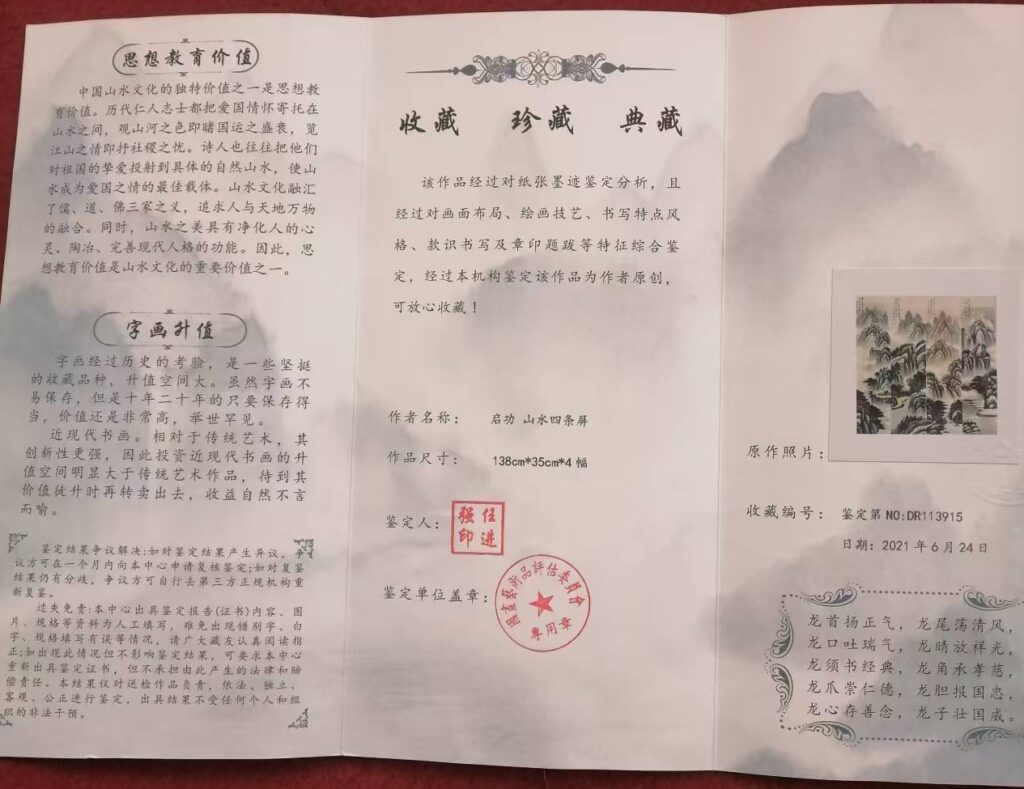 思想教育价值
中国山水文化的独特价值之一是思想教
育价值。历代仁人志士都把爱国情怀寄托在
山水之间，观山河之色即睹国运之盛衰，览
江山之情即抒社稷之忧。诗人也往往把他们
对祖国的挚爱投射到具体的自然山水，使山
水成为爱国之情的最佳载体。山水文化融汇
了儒、道、佛三家之义，追求人与天地万物
的融合。同时，山水之美具有净化人的心
灵、陶冶、完善现代人格的功能。因此，思
想教育价值是山水文化的重要价值之一。
字画升值
字画经过历史的考验，是一些坚挺
的收藏品种，升值空间大。虽然字画不
易保存，但是十年二十年的只要保存得
当，价值还是非常高，举世罕见。
近现代书画。相对于传统艺术，其
创新性更强，因此投资近现代书画的升
值空间明显大于传统艺术作品，待到其
价值徒升时再转卖出去，收益自然不言
而喻。
鉴定结果争议解决:如对鉴定结果产生异议，争
议方可在一个月内向本中心申请复核鉴定;如对复鉴
结果仍有分歧，争议方可自行去第三方正规机构重
新复鉴。
过失免责:本中心出具鉴定报告(证书)内容、图
片、规格等资料为人工填写，难免出现错别字、白
字、规格填写有误等情况，请广大藏友认真阅读指
正;如出现此情况但不影响鉴定结果，可要求本中心
重新出具鉴定证书，但不承担由此产生的法律和赔
偿责任。本结果仅对送检作品负责，依法、独立、
客观、公正进行鉴定，出具结果不受任何个人和组
织的非法干预。
收藏 珍藏 典藏
该作品经过对纸张墨迹鉴定分析，且
经过对画面布局、绘画技艺、书写特点风
格、款识书写及章印题跋等特征综合鉴
定，经过本机构鉴定该作品为作者原创，
可放心收藏！
作者名称： 启功 山水四条屏
作品尺寸： 138cm*35cm*4幅
鉴定人：
任进
强印
鉴定单位盖章：
國畫藝術品評估委員會
专用章
原作照片：
收藏编号： 鉴定第NO:DR113915
日期：2021年6月24日
龙首扬正气，龙尾荡清风，
龙口吐瑞气，龙睛放祥光，
龙须书经典，龙角承孝慈，
龙爪崇仁德，龙胆报国忠，
龙心存善念，龙子壮国威。